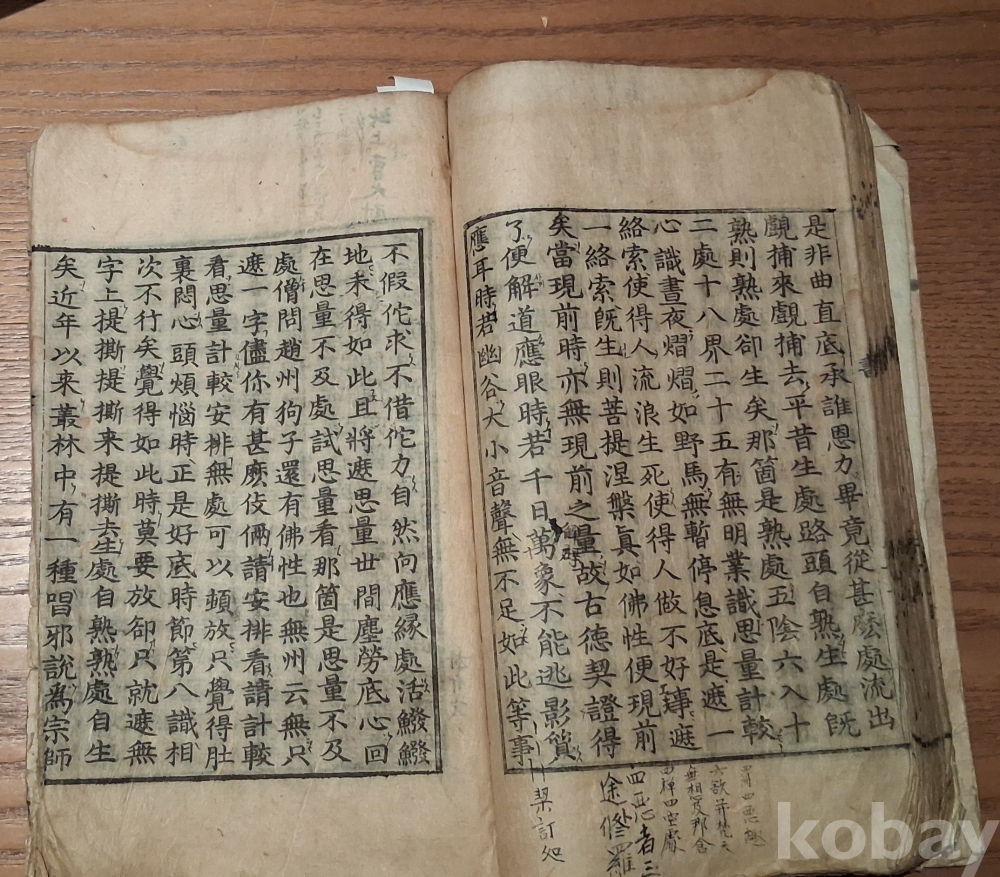 是非曲直底承誰恩力畢竟從甚麽處流出
覷捕來覷捕去平昔生處路頭自熟生處既
熟則熟處卻生矣那箇是熟處五陰六入十
二處十八界二十五有無明業識思量計較
心識晝夜熠熠如野馬無暫停息底是遮一
絡索使得人流浪生死使得人做不好事遮
一絡索旣生則菩提涅槃眞如佛性便現前
矣當現前時亦無現前之量故古德契證得
了便解道應眼時若千日萬象不能逃影質
應耳時若幽谷大小音聲無不足如此等事
不假佗求不借佗力自然向應緣處活鱍鱍
地未得如此且將遮思量世間塵勞底心回
在思量不及處試思量看那箇是思量不及
處僧問趙州狗子還有佛性也無州云無只
遮一字儘你有甚麽伎倆請安排看請計較
看思量計較安排無處可以頓放只覺得肚
裏悶心頭煩惱時正是好底時節第八識相
次不行矣覺得如此時莫要放卻只就遮無
字上提撕提撕來提撕去生處自熟熟處自生
矣近年以來叢林中有一種唱邪說爲宗師
四惡者三
途修羅
kobay